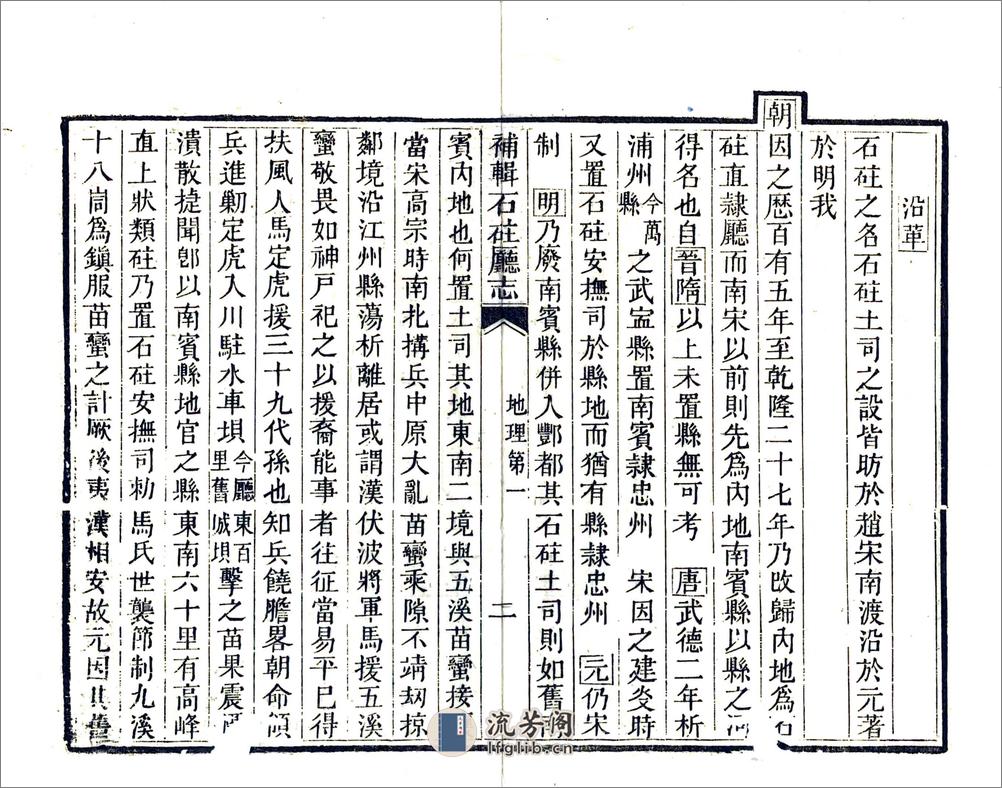 沿革
石砫之名石砫土司之設皆昉於趙宋南渡沿於元著
於明我
朝因之歷百有五年至乾隆二十七年乃改歸內地爲石
砫直隸廳而南宋以前則先爲內地南賓縣以縣之
得名也自晉隋以上未置縣無可考　唐武德二年析
浦州今萬縣之武寍縣置南賓隸忠州　宋因之建炎時
又置石砫安撫司於縣地而猶有縣隸忠州　元仍宋
制　明乃廢南賓縣併入酆都其石砫土司則如舊
補輯石砫廳志　地理第一　二
賓內地也何置土司其地東南二境與五溪苗蠻接
當宋高宗時南北搆兵中原大亂苗蠻乘隙不靖刼掠
鄰境沿江州縣蕩析離居或謂漢伏波將軍馬援五溪
蠻敬畏如神戶祀之以援裔能事者往征當易平已得
扶風人馬定虎援三十九代孫也知兵饒膽畧朝命領
兵進勦定虎入川駐水車壩今廳東百里舊城壩擊之苗果震
潰散捷聞卽以南賓縣地官之縣東南六十里有高峰
直上狀類砫乃置石砫安撫司勅馬氏世襲節制九溪
十八峝爲鎮服苗蠻之計厥後夷漢相安故元因其舊
流芳阁
lfglib.cn